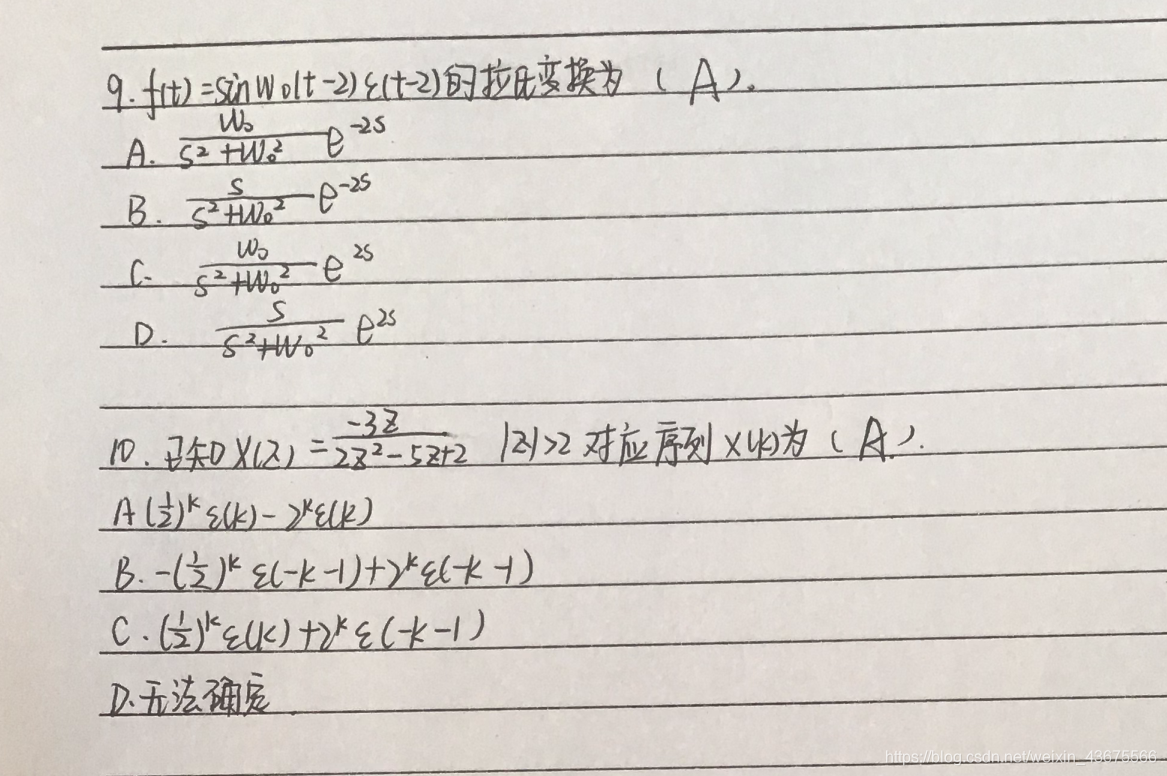 9. f(t)=sinW₀(t-2)ε(t-2)的拉氏变换为（A）。
A. W₀/(S²+W₀²) e^(-2S)
B. S/(S²+W₀²) e^(-2S)
C. W₀/(S²+W₀²) e^(2S)
D. S/(S²+W₀²) e^(2S)
10. 已知X(Z)=-3Z/(2Z²-5Z+2) |Z|>2 对应序列X(k)为（A）.
A (1/2)^k ε(k)-2^k ε(k)
B. -(1/2)^k ε(-k-1)+2^k ε(-k-1)
C. (1/2)^k ε(k)+2^k ε(-k-1)
D. 无法确定
https://blog.csdn.net/weixin_43675566